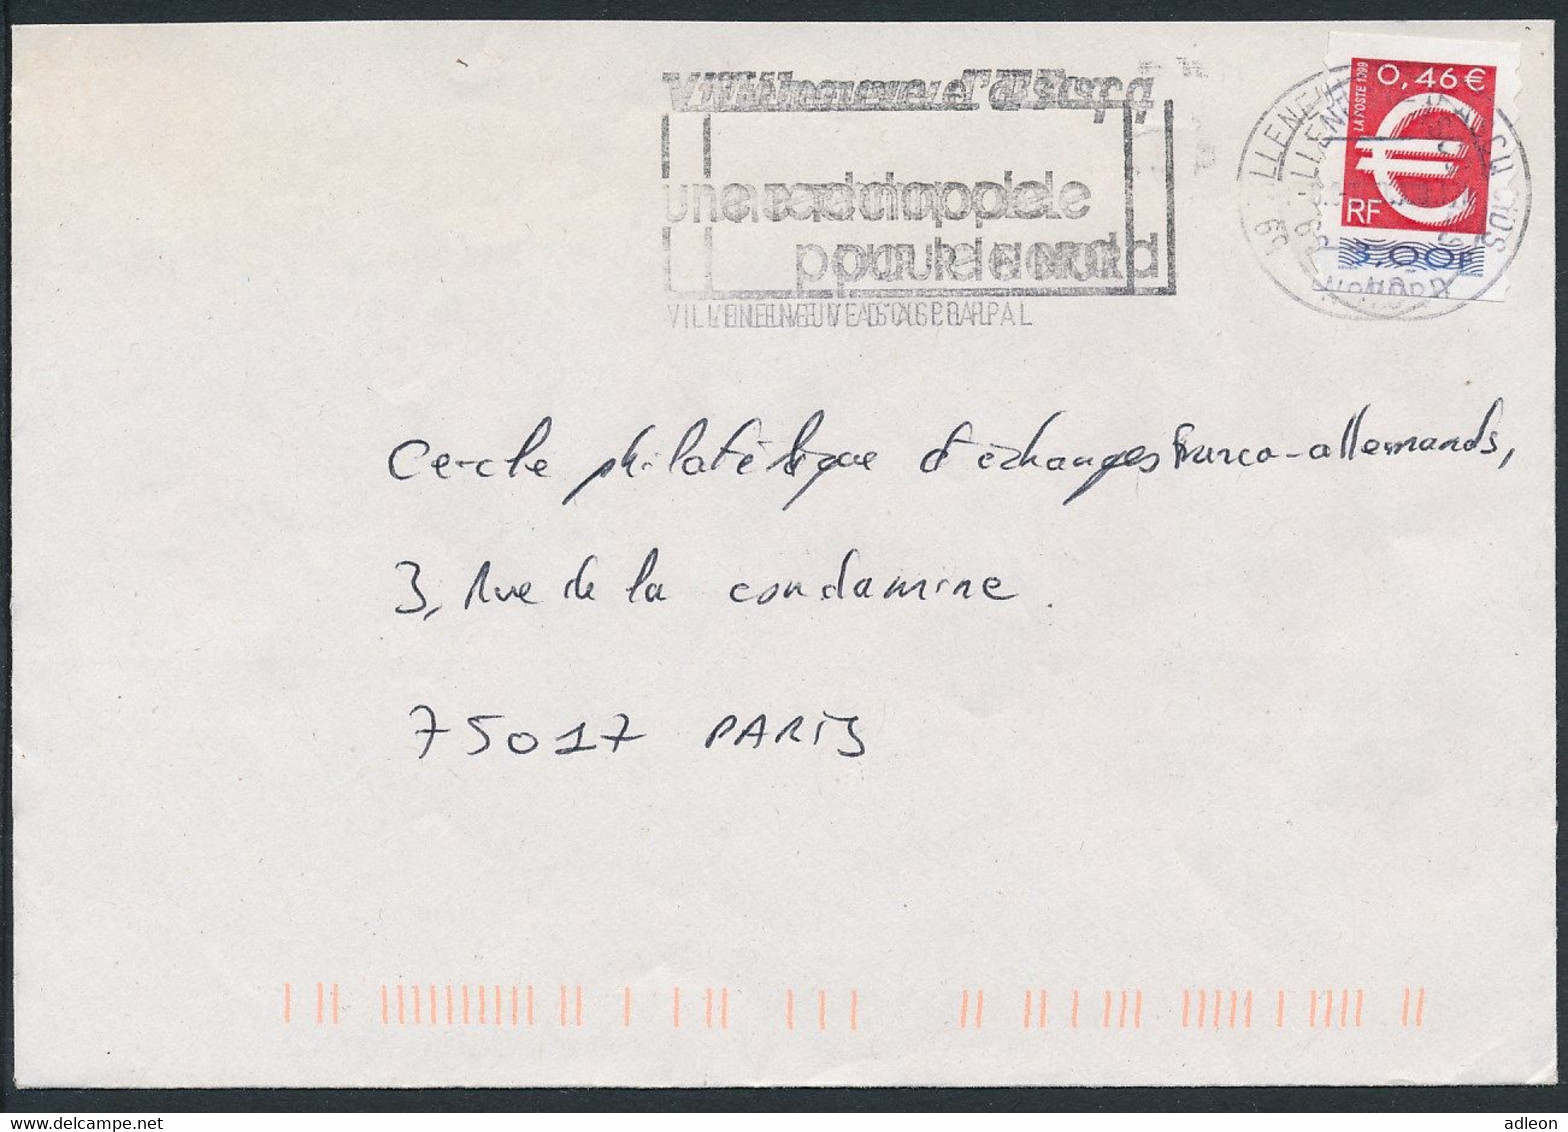 Villeneuve d'Ascq
une technopole
pour le Nord
VILLENEUVE D'ASCQ PPAL
0,46 €
LA POSTE 1999
RF
3,00F
59
NORD
Cercle philatélique d'échanges franco-allemands,
3, rue de la condamine
75017 PARIS
delcampe.net
adleon